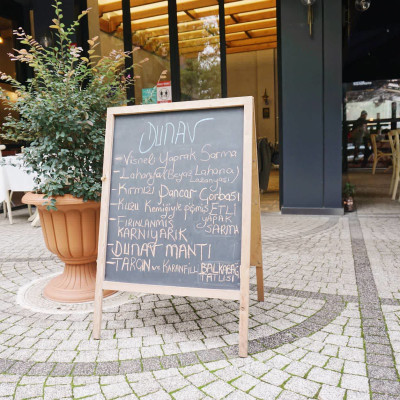 DUNAV
- Vişneli Yaprak Sarma
- Lahanya (Beyaz Lahana
- Kırmızı Pancar Çorbası
- Kuzu Kemiğiyle pişmiş ETLİ YAPRAK SARMA
- FIRINLANMIŞ KARNIYARIK
- DUNAV MANTI
- TARÇIN ve KARANFİLLİ BALKABAĞI TATLISI